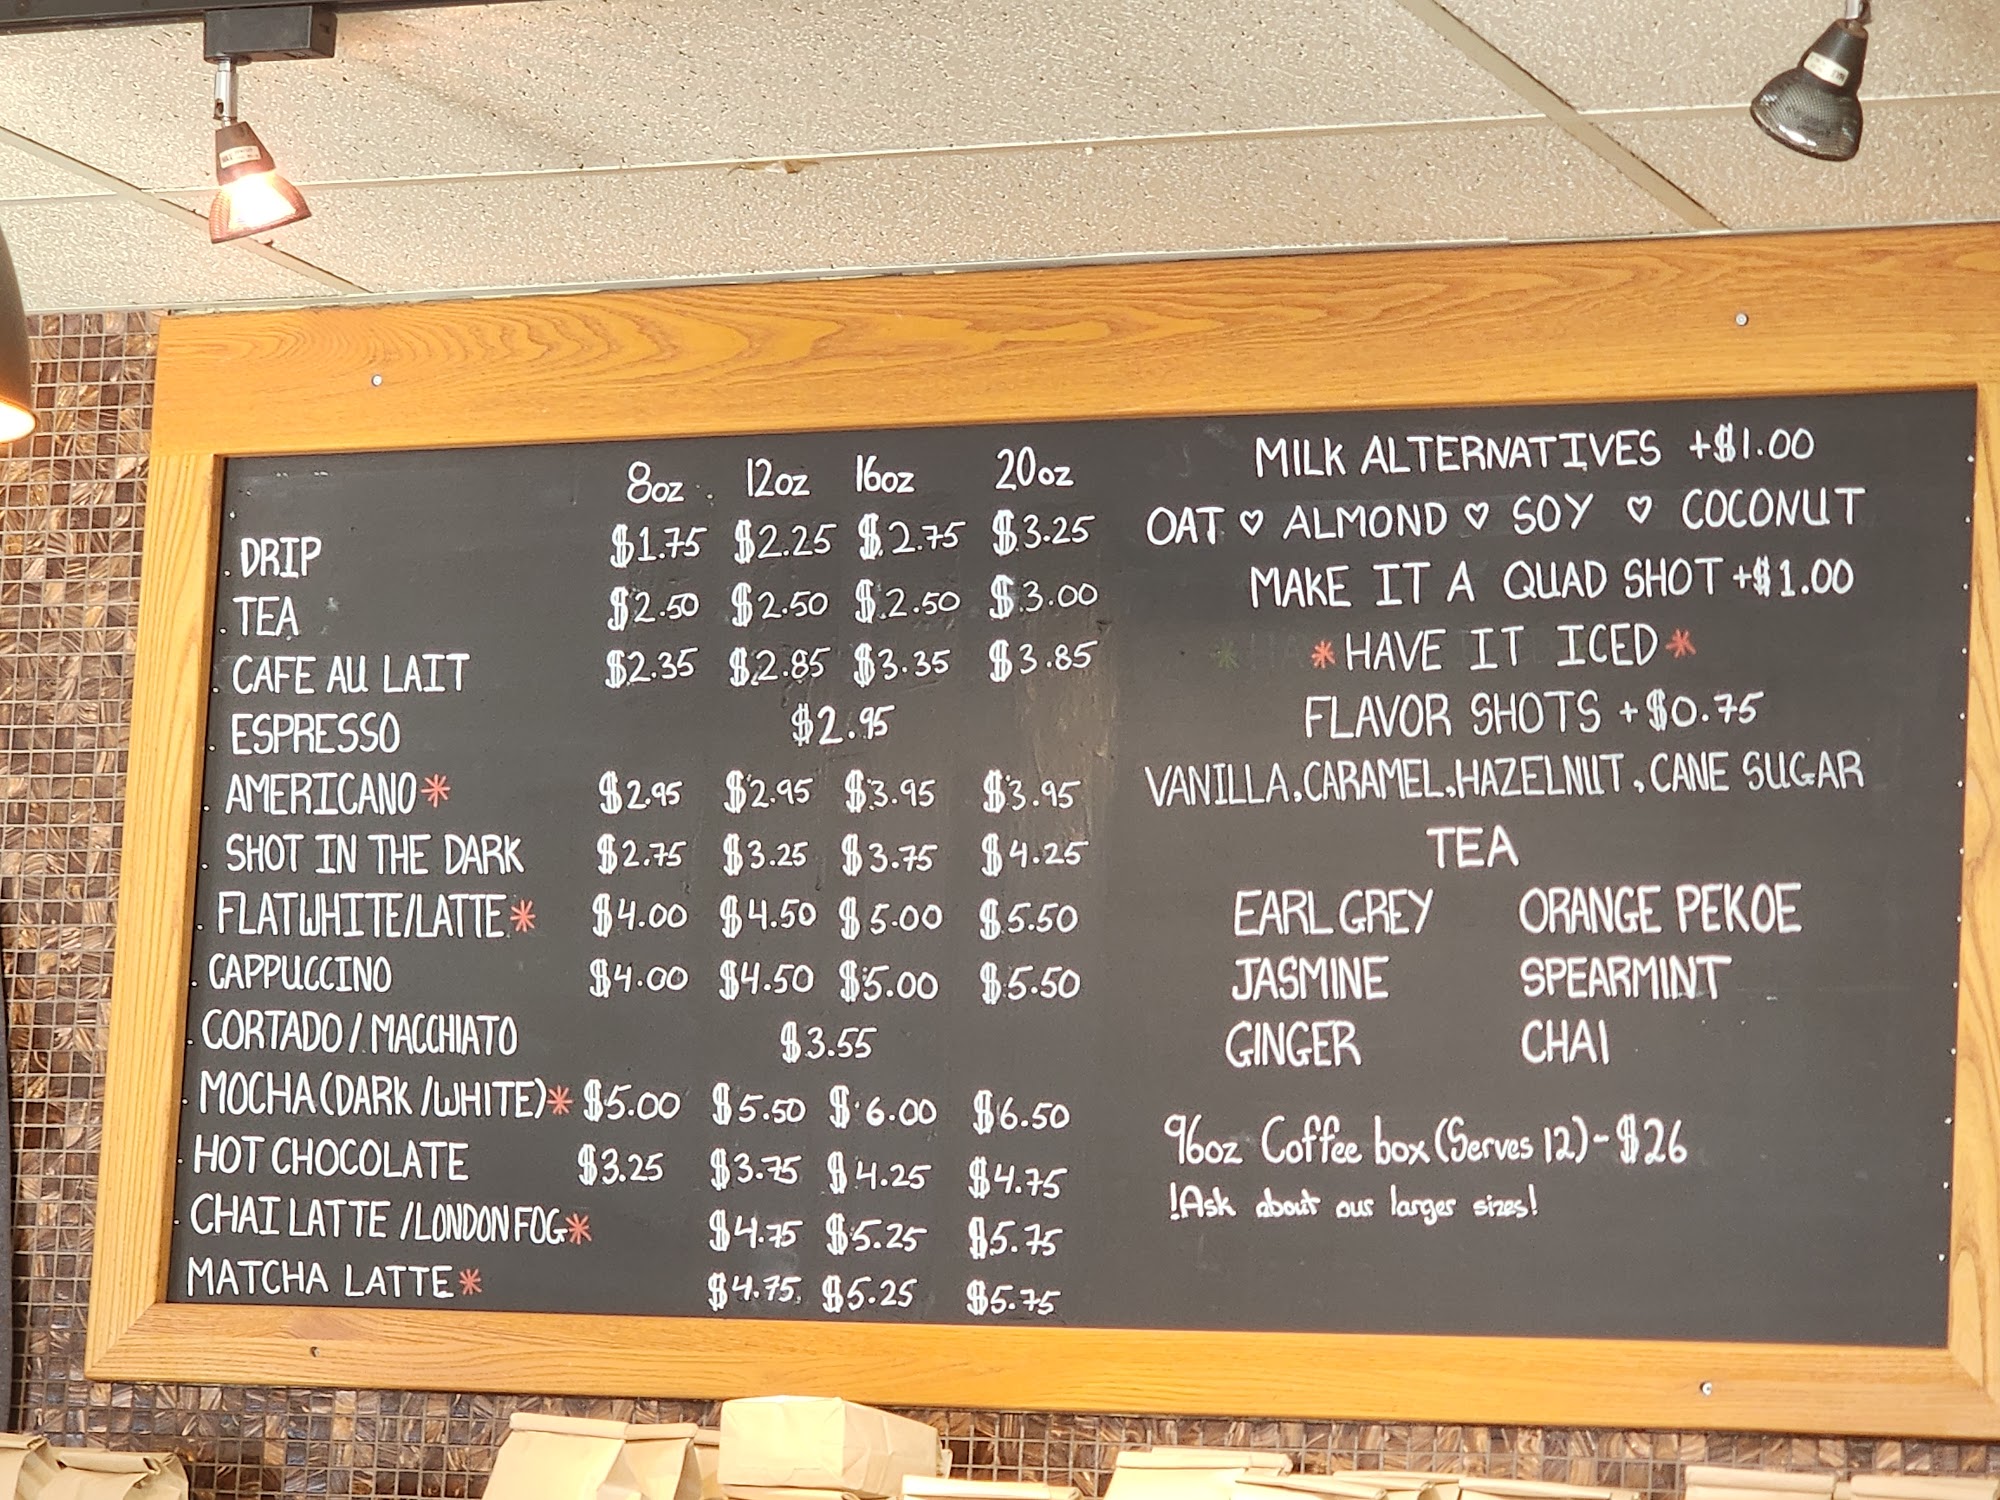 8oz 12oz 16oz 20oz
DRIP $1.75 $2.25 $2.75 $3.25
TEA $2.50 $2.50 $2.50 $3.00
CAFE AU LAIT $2.35 $2.85 $3.35 $3.85
ESPRESSO $2.95
AMERICANO* $2.95 $2.95 $3.95 $3.95
SHOT IN THE DARK $2.75 $3.25 $3.75 $4.25
FLATWHITE/LATTE* $4.00 $4.50 $5.00 $5.50
CAPPUCCINO $4.00 $4.50 $5.00 $5.50
CORTADO / MACCHIATO $3.55
MOCHA (DARK /WHITE)* $5.00 $5.50 $6.00 $6.50
HOT CHOCOLATE $3.25 $3.75 $4.25 $4.75
CHAI LATTE /LONDON FOG* $4.75 $5.25 $5.75
MATCHA LATTE* $4.75 $5.25 $5.75
MILK ALTERNATIVES +$1.00
OAT ♡ ALMOND ♡ SOY ♡ COCONUT
MAKE IT A QUAD SHOT +$1.00
*HAVE IT ICED*
FLAVOR SHOTS +$0.75
VANILLA, CARAMEL, HAZELNUT, CANE SUGAR
TEA
EARL GREY ORANGE PEKOE
JASMINE SPEARMINT
GINGER CHAI
96oz Coffee box (Serves 12) - $26
!Ask about our larger sizes!